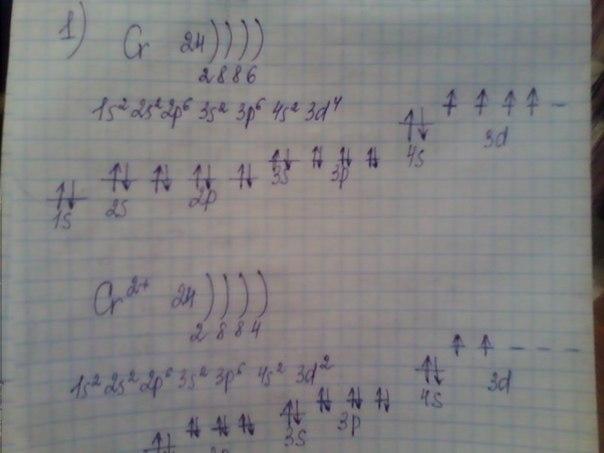 1) Cr 24))))
2 8 8 6
1s² 2s² 2p⁶ 3s² 3p⁶ 4s² 3d⁴
↑↓ ↑↓ ↑↓ ↑↓ ↑↓ ↑↓ ↑↓ ↑↓ ↑↓ ↑↓ ↑ ↑ ↑ ↑ –
1s 2s 2p 3s 3p 4s 3d
Cr²⁺ 24))))
2 8 8 4
1s² 2s² 2p⁶ 3s² 3p⁶ 4s² 3d²
↑↓ ↑↓ ↑↓ ↑↓ ↑↓ ↑↓ ↑↓ ↑↓ ↑↓ ↑ ↑ – – –
3s 3p 4s 3d